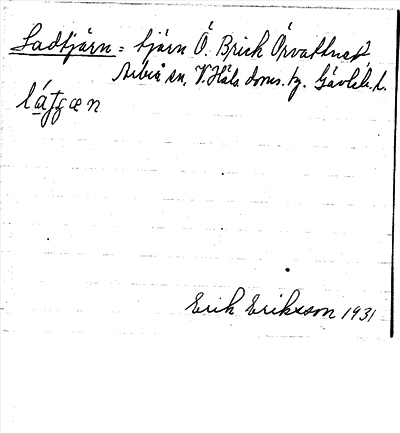 Ladtjärn = tjärn Ö. Brick Örvattnet
Arbrå sn, V. Häls. doms. tg. Gävleb. l.
Erik Eriksson 1931